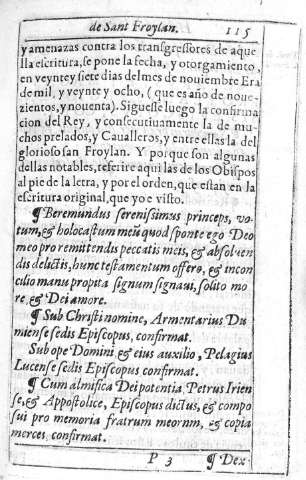 de Sant Froylan. 115
y amenazas contra los transgressores de aque
lla escritura, se pone la fecha, y otorgamiento,
en veyntey siete dias del mes de nouiembre Era
de mil, y veynte y ocho, ( que es año de noue-
zientos, y nouenta). Siguesse luego la confirma
cion del Rey, y consecutiuamente la de mu-
chos prelados, y Caualleros, y entre ellas la del
glorioso san Froylan. Y porque son algunas
dellas notables, referire aqui las de los Obispos
al pie de la letra, y por el orden, que estan en la
escritura original, que yo e visto.
¶ Beremundus serenissimus princeps, vo-
tum, & holocastum meū quod sponte ego Deo
meo pro remittendis peccatis meis, & absoluen
dis delictis, hunc testamentum offero, & in con
cilio manu propita signum signaui, solito mo
re, & Dei amore.
¶ Sub Christi nomine, Armentarius Du
miense sedis Episcopus, confirmat.
Sub ope Domini & eius auxilio, Pelagius
Lucense sedis Episcopus confirmat.
¶ Cum almifica Dei potentia Petrus Irien
se, & Appostolice, Episcopus dictus, & compo
sui pro memoria fratrum meornm, & copia
merces, confirmat.
P 3 ¶ Dex-